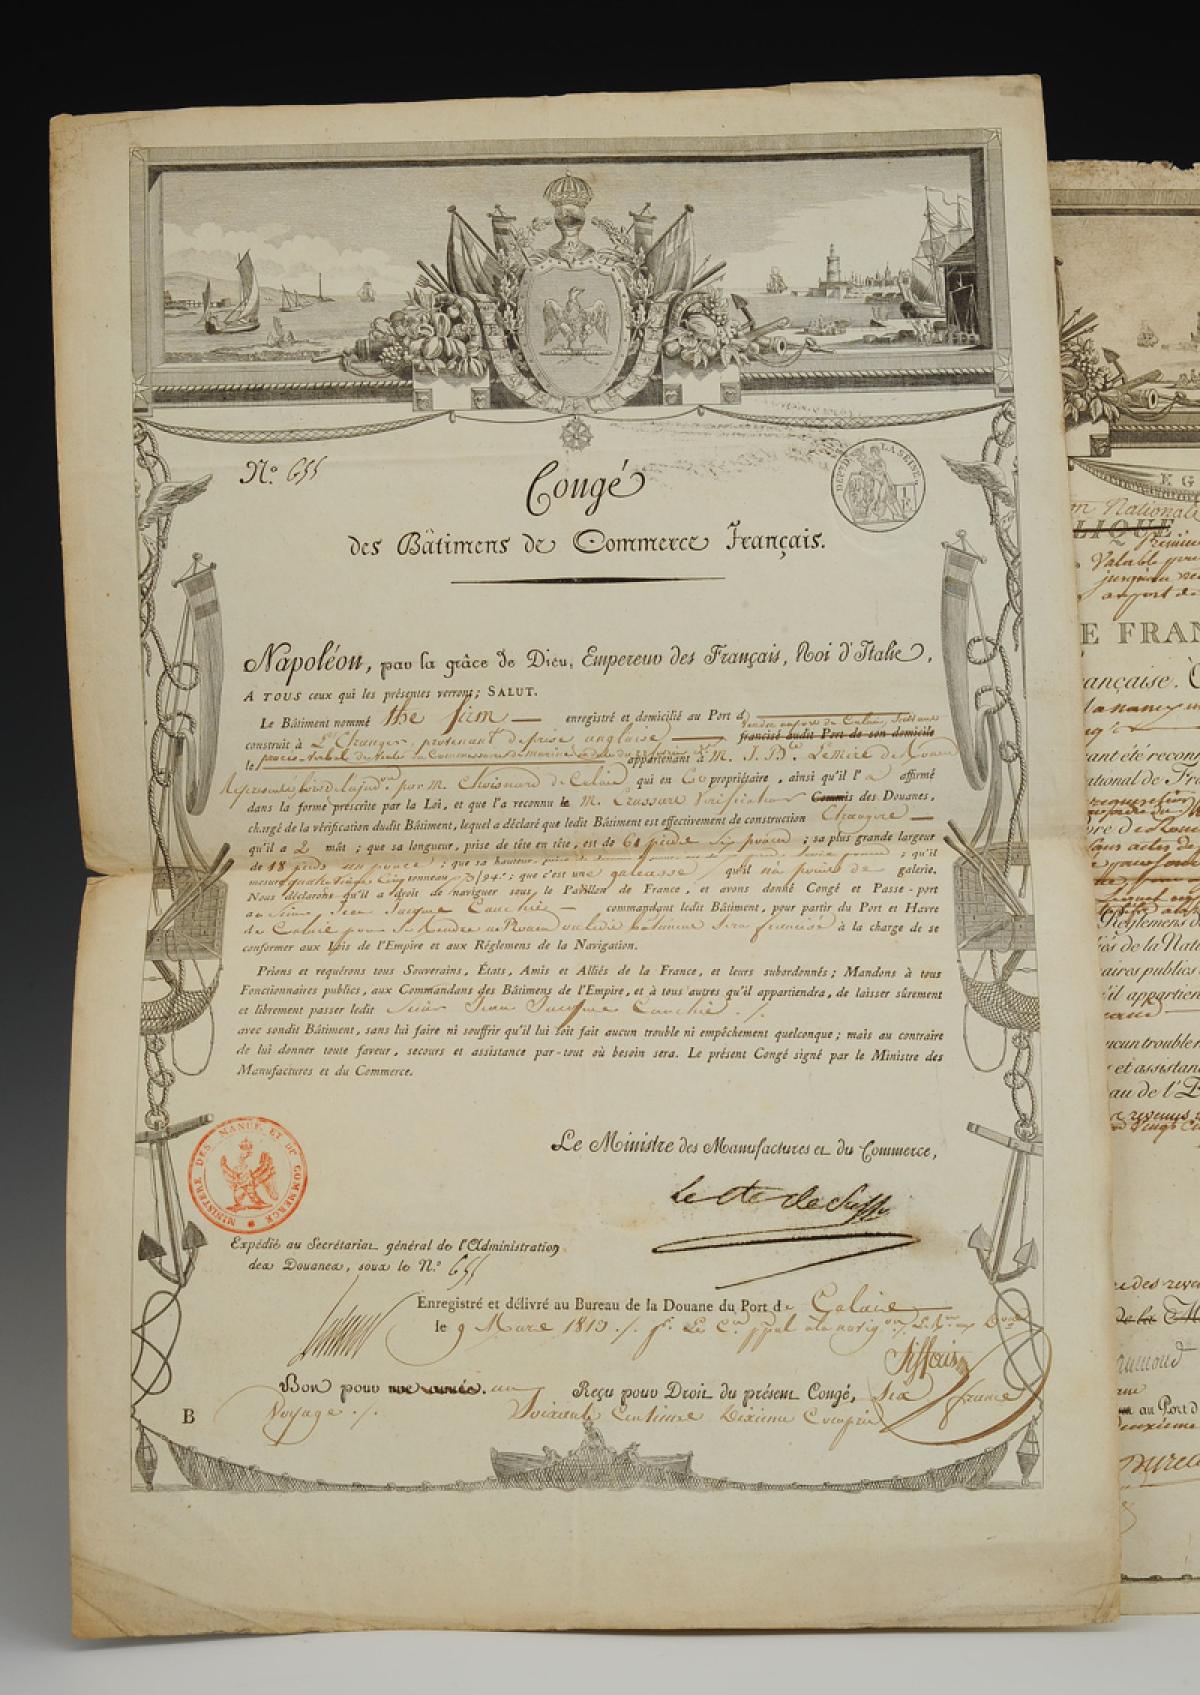 N.º 655
DEPT. DE LA SEINE
Congé
des Bâtimens de Commerce Français.
Napoléon, par la grâce de Dieu, Empereur des Français, Roi d'Italie,
A TOUS ceux qui les présentes verront; SALUT.
Le Bâtiment nommé the firm — enregistré et domicilié au Port d
construit à L'Etranger, provenant de prise anglaise — francisé audit Port de son domicile
le procès-verbal de Vente du Commissaire de marine appartenant à M. J. Bte. Lemire de Rouen
Représenté par M. Choisnard de Calais qui en est propriétaire, ainsi qu'il l'a affirmé
dans la forme prescrite par la Loi, et que l'a reconnu le M. Crassure Vérificateur Commis des Douanes,
chargé de la vérification dudit Bâtiment, lequel a déclaré que ledit Bâtiment est effectivement de construction Etrangère —
qu'il a 2 mât; que sa longueur, prise de tête en tête, est de 61 pieds six pouces; sa plus grande largeur
de 18 pieds un pouce; que sa hauteur, pouces; qu'il
mesure quatre vingt cinq tonneaux 3/94.e; que c'est une galeasse, qu'il n'a point de galerie.
Nous déclarons qu'il a droit de naviguer sous le Pavillon de France, et avons donné Congé et Passe-port
au Sieur Jean Jacques Cauchie — commandant ledit Bâtiment, pour partir du Port et Havre
de Calais pour se Rendre à Rouen où ledit bâtiment sera francisé à la charge de se
conformer aux Lois de l'Empire et aux Réglemens de la Navigation.
Prions et requérons tous Souverains, États, Amis et Alliés de la France, et leurs subordonnés; Mandons à tous
Fonctionnaires publics, aux Commandans des Bâtimens de l'Empire, et à tous autres qu'il appartiendra, de laisser sûrement
et librement passer ledit Sieur Jean Jacques Cauchie ./.
avec sondit Bâtiment, sans lui faire ni souffrir qu'il lui soit fait aucun trouble ni empêchement quelconque; mais au contraire
de lui donner toute faveur, secours et assistance par-tout où besoin sera. Le présent Congé signé par le Ministre des
Manufactures et du Commerce.
Le Ministre des Manufactures et du Commerce,
MINISTERE DES MANUF. ET DU COMMERCE
Le Cte de Sussy
Expédié au Secrétariat général de l'Administration
des Douanes, sous le N.º 655
Enregistré et délivré au Bureau de la Douane du Port de Calais
le 9 Mars 1813 ./.
Bon pour une année. un
Voyage ./.
Reçu pour Droit du présent Congé, six francs
Soixante Centimes Dixième Compris
B
Nationale
LIQUE
Valable pour
E FRAN
ançaise.
ant été reconn
ational de Fra
Réglemens d
és de la Nat
aires publics
'il appartien
ucun trouble
et assistan
au de l'
au Port d